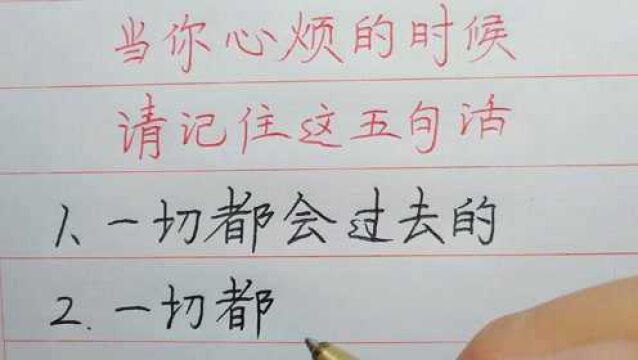 当你心烦的时候
请记住这五句话
1、一切都会过去的
2.一切都